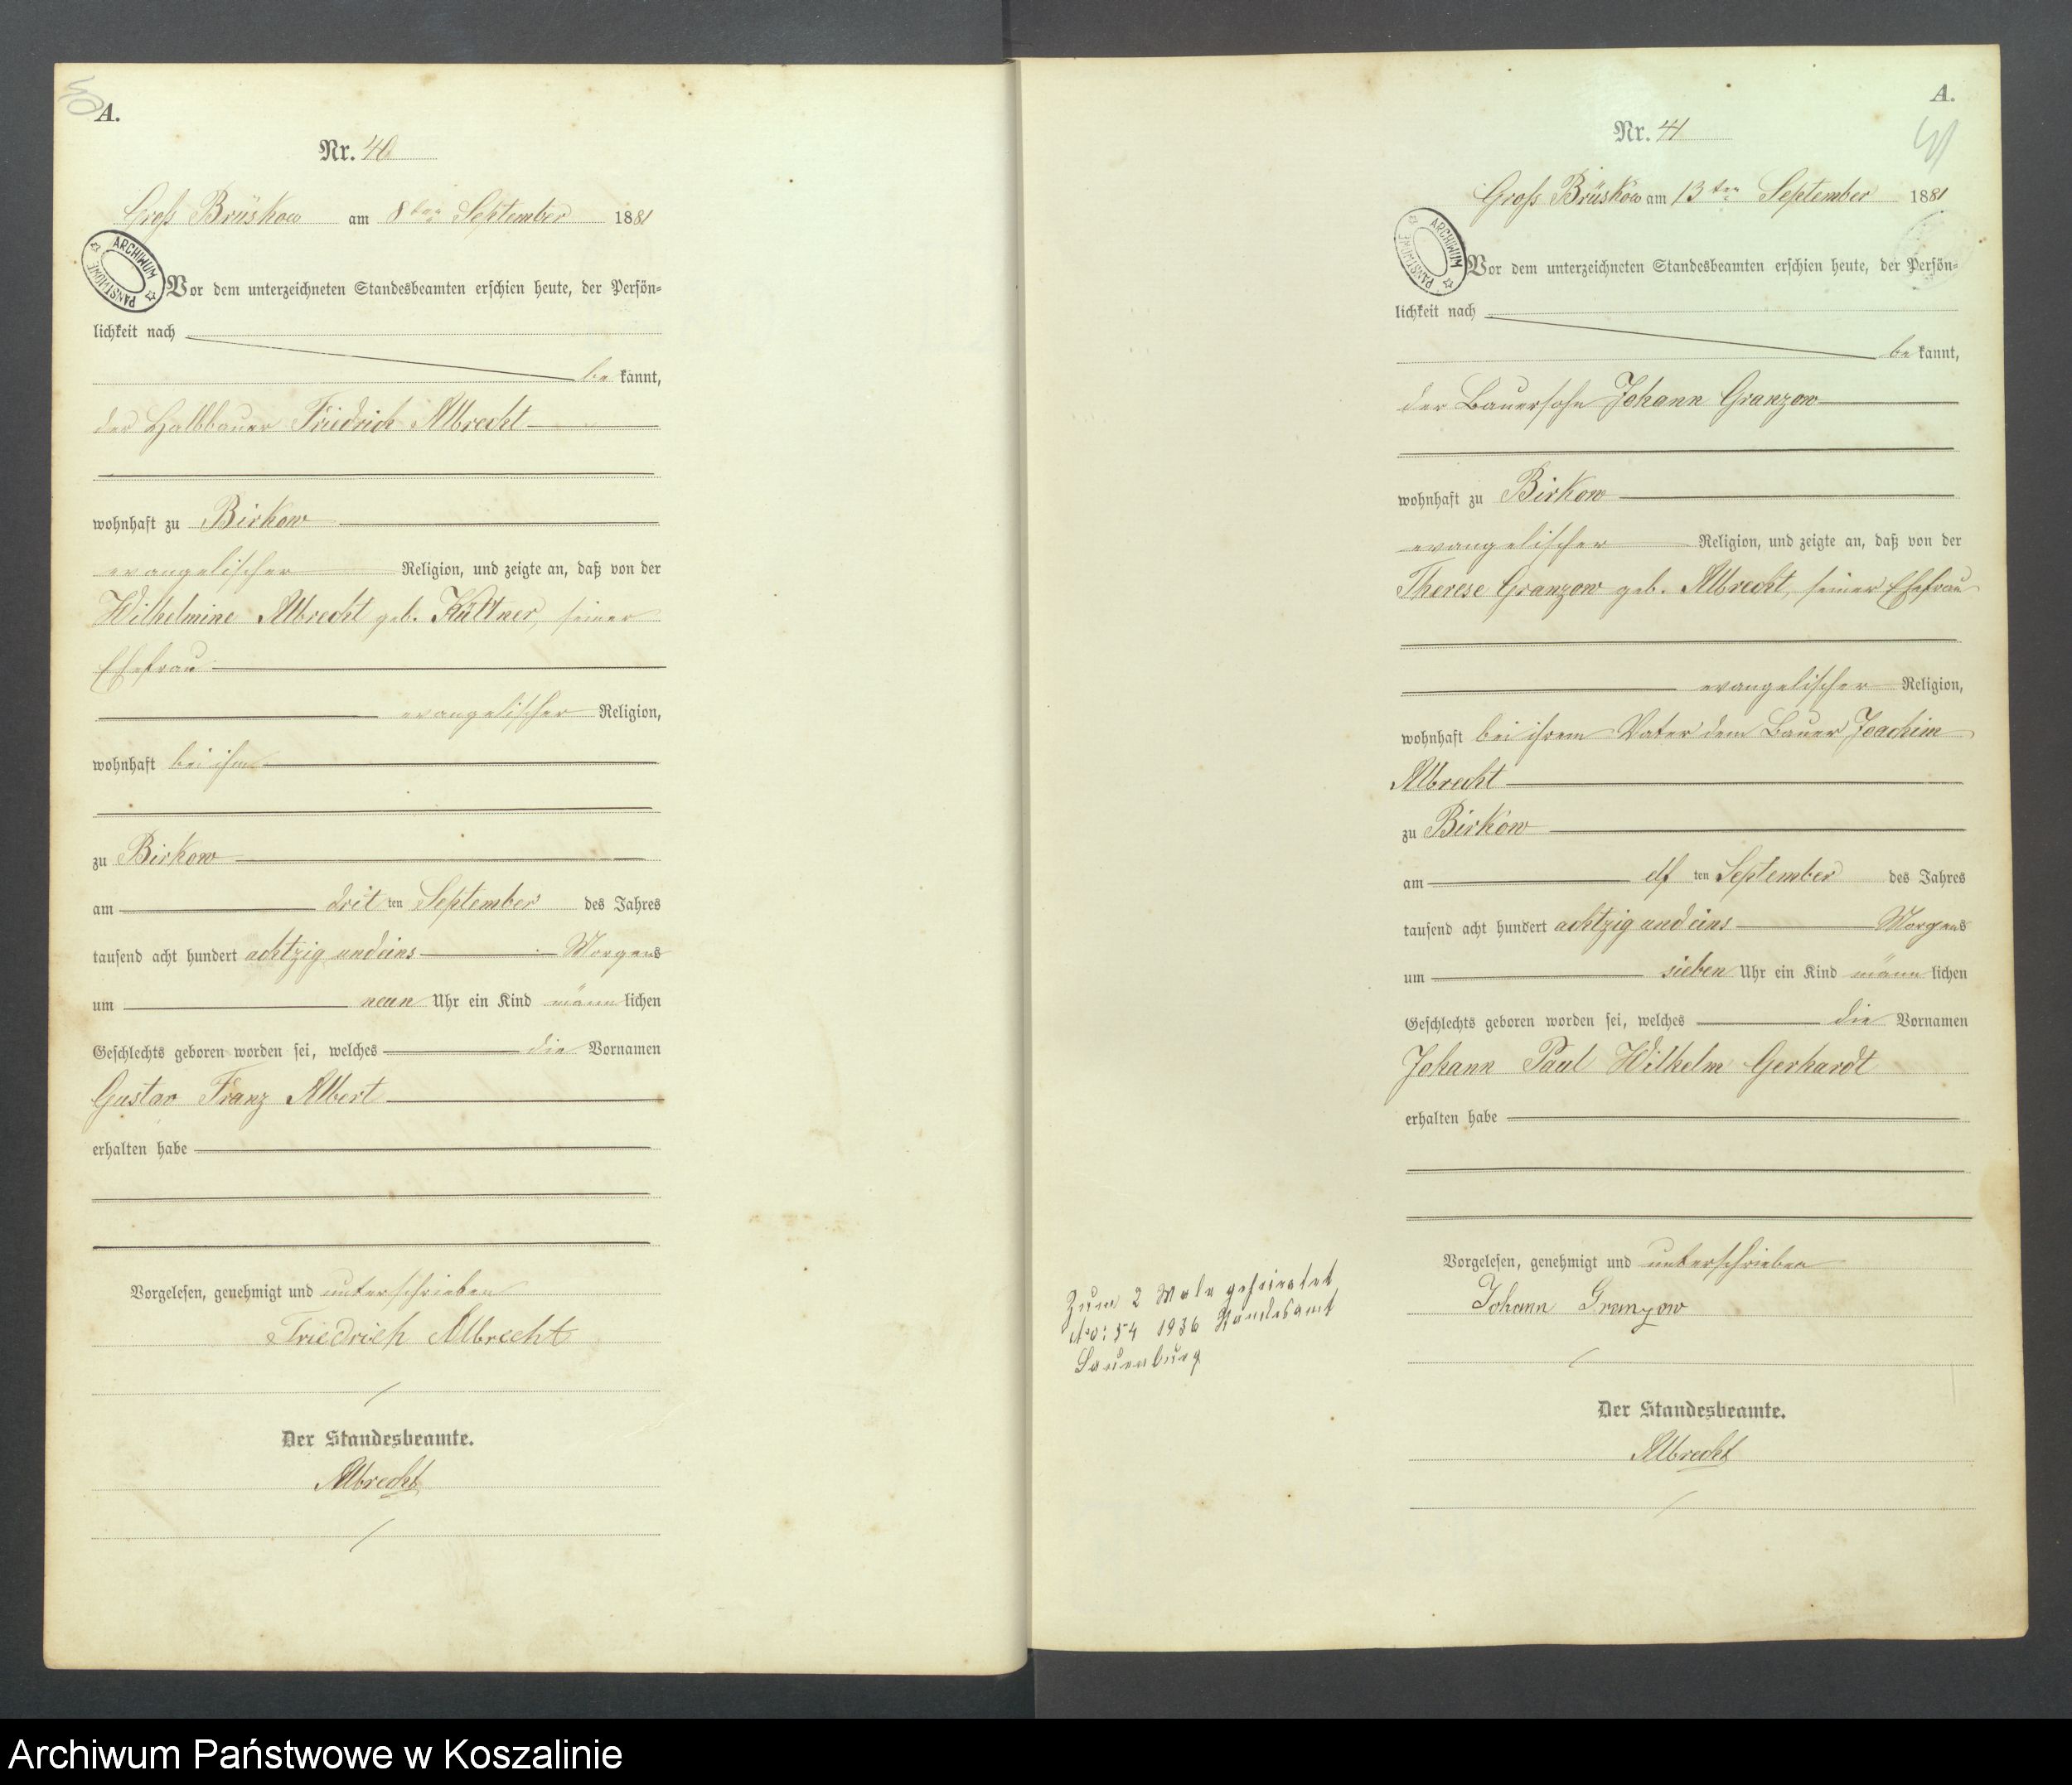 A.
Nr. 40
Groß Brüskow am 8ten September 1881
ARCHIWUM PAŃSTWOWE
Vor dem unterzeichneten Standesbeamten erschien heute, der Persön-
lichkeit nach
be kannt,
der Halbbauer Friedrich Albrecht
wohnhaft zu Birkow
evangelischer Religion, und zeigte an, daß von der
Wilhelmine Albrecht geb. Küttner, seiner
Ehefrau
evangelischer Religion,
wohnhaft bei ihm
zu Birkow
am drit ten September des Jahres
tausend acht hundert achtzig und eins Morgens
um neun Uhr ein Kind männ lichen
Geschlechts geboren worden sei, welches die Vornamen
Gustav Franz Albert
erhalten habe
Vorgelesen, genehmigt und unterschrieben
Friedrich Albrecht
Der Standesbeamte.
Albrecht
A.
Nr. 41
41
Groß Brüskow am 13ten September 1881
ARCHIWUM PAŃSTWOWE
Vor dem unterzeichneten Standesbeamten erschien heute, der Persön-
lichkeit nach
be kannt,
der Bauersohn Johann Granzow
wohnhaft zu Birkow
evangelischer Religion, und zeigte an, daß von der
Therese Granzow geb. Albrecht, seiner Ehefrau
evangelischer Religion,
wohnhaft bei ihrem Vater dem Bauer Joachim
Albrecht
zu Birkow
am elf ten September des Jahres
tausend acht hundert achtzig und eins Morgens
um sieben Uhr ein Kind männ lichen
Geschlechts geboren worden sei, welches die Vornamen
Johann Paul Wilhelm Gerhardt
erhalten habe
Vorgelesen, genehmigt und unterschrieben
Johann Granzow
Der Standesbeamte.
Albrecht
Zum 2 Male geheiratet
No: 54 1936 Standesamt
Lauenburg
Archiwum Państwowe w Koszalinie